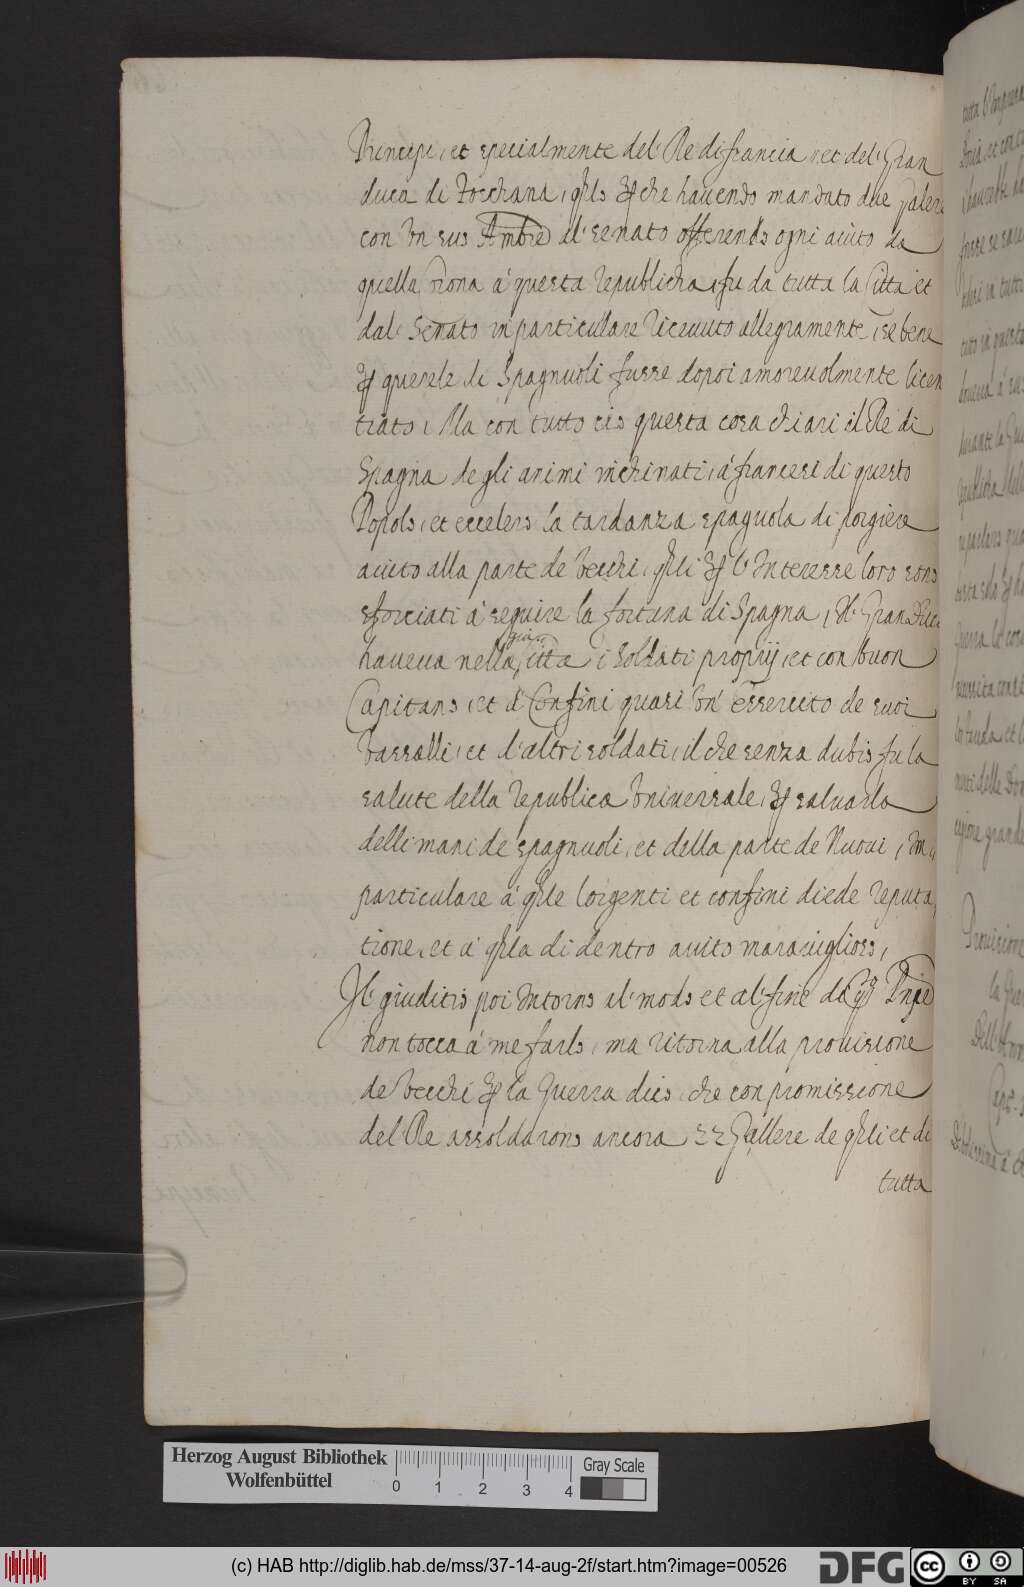 Principi, et specialmente del' Re di francia, et del' Gran
duca di Toschana, qłs ꝑche havendo mandato due Galere
con Vn suo Ambrē al' senato offerendo ogni aiuto da
quella Corona á questa republicha, fu da tutta la Citta et
dal Senato in particullare riceuuto allegramente, se bene
ꝑ querele di Spagnuoli fusse dopoi amoreuolmente licen
tiato, Ma con tutto cio questa cosa chiari il Re di
Spagna degli animi inchinati, á francesi di questo
Popolo, et eccelero la tardanza spagnola di porgiere
aiuto alla parte de Vecchi, qłi ꝑ l'Interesse loro sono
sforciati á seguire la fortuna di Spagna, Il Gran Duca
haueua nella già citta i Soldati proprij, et con buon
Capitano, et á Confini quasi Vn' Essercito de suoi
Vassalli, et d'altri soldati, il che senza dubio fu la
salute della republica Vniuersale, ꝑ saluarla
delli mani de spagnuoli, et della parte de Nuoui, In
particulare á qłle lorgenti et confini diede reputa,
tione, et á qłla di dentro aiuto marauiglioso,
Il' giuditio poi Intorno al' modo et al' fine di Prīpe
non tocca á me farlo, ma ritorna alla prouisione
de Vecchi ꝑ la Guerra dico, che con promissione
del Re assoldarono ancora 22 Gallere de qłli et di
tutta
Herzog August Bibliothek
Wolfenbüttel
0 1 2 3 4
Gray Scale
(c) HAB http://diglib.hab.de/mss/37-14-aug-2f/start.htm?image=00526
DFG
cc
BY SA